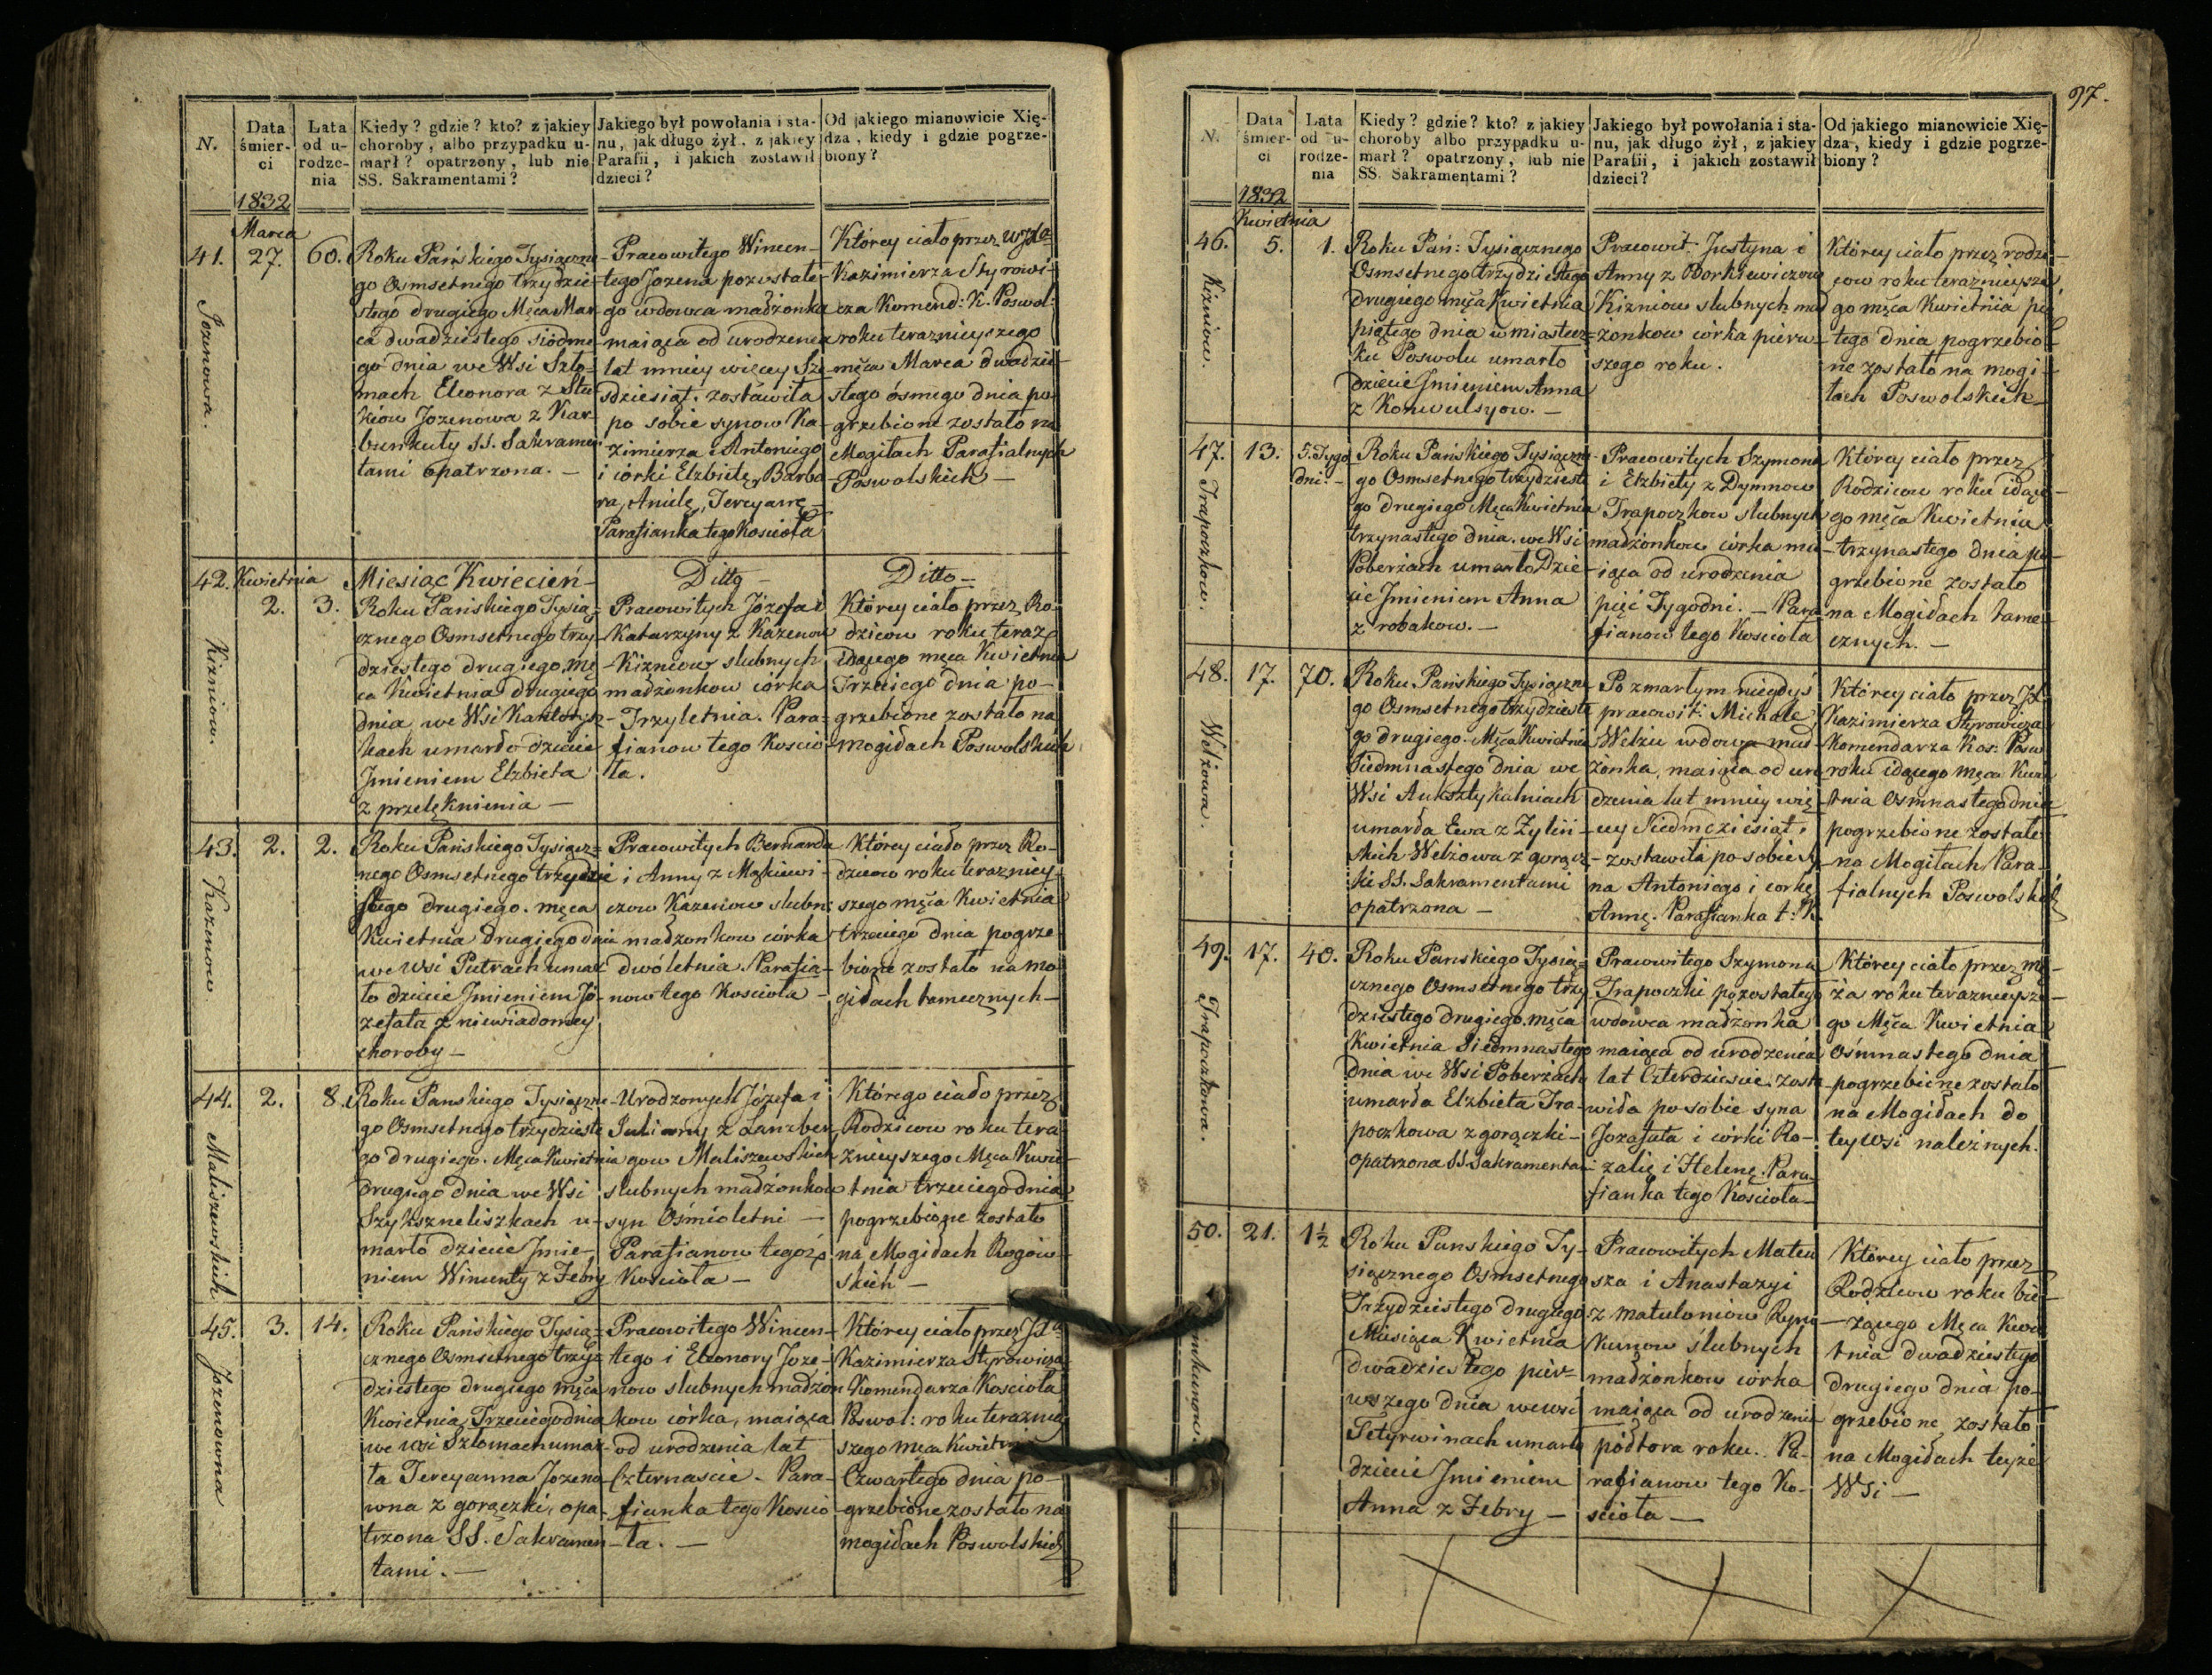 N.
Data śmier-ci
Lata od u-rodze-nia
Kiedy? gdzie? kto? z jakiey
choroby, albo przypadku u-
marł? opatrzony, lub nie
SS. Sakramentami?
Jakiego był powołania i sta-
nu, jak długo żył, z jakiey
Parafii, i jakich zostawił
dzieci?
Od jakiego mianowicie Xię-
dza, kiedy i gdzie pogrze-
biony?
1832
Marca
41. 27. 60.
Jozenowa.
Roku Pańskiego Tysiączne
go Osmsetnego trzydzie
stego drugiego Męca Mar
ca dwadziestego siódme
go dnia we Wsi Szło-
mach Eleonora z Stu
kiow Jozenowa z Kar
bunkuły SS. Sakramen
tami opatrzona. —
Pracowitego Wincen-
tego Jozena pozostałe
go wdowca madżonka
maiąca od urodzenia
lat mniey więcey Sze
śdziesiąt. zostawiła
po sobie synow Ka-
zimierza i Antoniego
i córki Elżbietę, Barba
rę, Anielę, Tereyannę —
Parafianka tego Kościoła
Którey ciało przez
Kazimierza Styrowi-
cza Komend: K. Poswol:
roku terazniejszego
męca Marca dwadzie-
stego ósmego dnia po-
grzebione zostało na
Mogiłach Parafialnych
Poswolskich —
42. Kwietnia
2. 3.
Kizniow.
Miesiąc Kwiecień —
Roku Pańskiego Tysią-
cznego Osmsetnego trzy-
dziestego drugiego, mę
ca Kwietnia drugiego
dnia we Wsi
kach umarło dziecie
Jmieniem Elżbieta
z przelęknienia —
Ditto —
Pracowitych Józefa i
Katarzyny z Kazenow
Kizniow slubnych
madżonkow córka
Trzyletnia. Para-
fianow tego Koscio-
ła.
Ditto —
Którey ciało przez Ro-
dzicow roku teraz
idącego męca Kwietnia
Trzeciego dnia po-
grzebione zostało na
mogiłach Poswolskich
43. 2. 2.
Kozenow
Roku Pańskiego Tysiącz-
nego Osmsetnego trzydzie
stego drugiego. męca
Kwietnia drugiego dnia
we wsi Putrach umar
ło dziecie Jmieniem Jó-
zefata z niewiadomey
choroby —
Pracowitych Bernarda
i Anny z Mąkiewi-
czow Kazeniow slubn:
madżonkow córka
dwóletnia. Parafia-
now tego Kościoła —
Którey ciało przez Ro-
dzicow roku terazniey
szego męca Kwietnia
trzeciego dnia pogrze
bione zostało na mo-
giłach tamecznych —
44. 2. 8.
Maliszewskich
Roku Panskiego Tysiączne
go Osmsetnego trzydzieste
go drugiego. Męca Kwietnia
drugiego dnia we Wsi
Szykszneliszkach u-
marło dziecie Jmie-
niem Wincenty z Febry
Urodzonych Józefa i
Julianny z Lanzber
gow Maliszewskich
slubnych madżonkow
syn Ośmioletni —
Parafianow tegoż
Kościoła —
Którego ciało przez
Rodzicow roku tera
znieyszego Męca Kwie-
tnia trzeciego dnia
pogrzebione zostało
na Mogiłach Rogow-
skich —
45. 3. 14.
Jozenowna
Roku Pańskiego Tysią-
cznego Osmsetnego trzy-
dziestego drugiego męca
Kwietnia, Trzeciego dnia
we wsi Szłomach umar-
ła Tereyanna Jozeno-
wna z gorączki, opa-
trzona SS. Sakramen-
tami. —
Pracowitego Wincen-
tego i Eleonory Joze-
now slubnych madżon
kow córka, maiąca
od urodzenia lat
Czternaście. Para-
fianka tego Koscio
ła. —
Którey ciało przez
Kazimierza Styrowicza
Komendarza Kościoła
Poswol: roku teraznie
szego męca Kwietnia
Czwartego dnia po-
grzebione zostało na
mogiłach Poswolskich
97.
N.
Data śmier-ci
Lata od u-rodze-nia
Kiedy? gdzie? kto? z jakiey
choroby albo przypadku u-
marł? opatrzony, lub nie
SS. Sakramentami?
Jakiego był powołania i sta-
nu, jak długo żył, z jakiey
Parafii, i jakich zostawił
dzieci?
Od jakiego mianowicie Xię-
dza, kiedy i gdzie pogrze-
biony?
1832
Kwietnia
46. 5. 1.
Kizniow.
Roku Pań: Tysiącznego
Osmsetnego trzydziestego
drugiego męca Kwietnia
piątego dnia w miastecz-
ku Poswolu umarło
dziecie Jmieniem Anna
z Konwulsyow. —
Pracowit. Justyna i
Anny z Borkiewiczow
Kizniow slubnych mad
żonkow córka pierw-
szego roku.
Którey ciało przez rodzi-
cow roku teraznieysze
go męca Kwietnia pią
tego dnia pogrzebio-
ne zostało na mogi-
łach Poswolskich
47. 13. 5. Tygo
dni. —
Trapoczkow.
Roku Pańskiego Tysiączne
go Osmsetnego trzydzieste
go drugiego Męca Kwietnia
trzynastego dnia. we Wsi
Poberżach umarło Dzie-
cie Jmieniem Anna
z robakow. —
Pracowitych Szymona
i Elżbiety z Dymnow
Trapoczkow slubnych
madżonkow córka ma-
iąca od urodzenia
pięć Tygodni. — Para
fianow tego Kościoła
Którey ciało przez
Rodzicow roku idące-
go męca Kwietnia
trzynastego dnia po-
grzebione zostało
na Mogiłach tame-
cznych. —
48. 17. 70.
Welżowa.
Roku Pańskiego Tysiączne
go Osmsetnego trzydzieste
go drugiego. Męca Kwietnia
Siedmnastego dnia we
Wsi Auksztykalniach
umarła Ewa z Zyliń-
skich Welżowa z gorącz-
ki SS. Sakramentami
opatrzona —
Po zmarłym niegdyś
pracowit: Michale
Welżu wdowa mad
żonka, maiąca od uro
dzenia lat mniey wię
cey Siedmdziesiąt.
zostawiła po sobie sy
na Antoniego i córkę
Annę. Parafianka t. K.
Którey ciało przez
Kazimierza Styrowicza
Komendarza Kos: Posw
roku idącego męca Kwie
tnia Osmnastego dnia
pogrzebione zostało
na Mogiłach Para-
fialnych Poswolskich
49. 17. 40.
Trapoczkowa.
Roku Panskiego Tysią-
cznego Osmsetnego trzy
dziestego drugiego. męca
Kwietnia Siedmnastego
dnia we Wsi Poberżach
umarła Elżbieta Tra-
poczkowa z gorączki —
opatrzona SS Sakramentami
Pracowitego Szymona
Trapoczki pozostałego
wdowca madżonka
maiąca od urodzenia
lat Czterdzieście. zosta
wiła po sobie syna
Jozafata i córki Ro-
zalię i Helenę. Para-
fianka tego Kościoła —
Którey ciało przez mę-
ża roku teraznieysze-
go Męca Kwietnia
Ośmnastego dnia
pogrzebione zostało
na Mogiłach do
tey wsi należnych.
50. 21. 1½
Roku Panskiego Ty-
siącznego Osmsetnego
Trzydziestego drugiego
Miesiąca Kwietnia
dwadziestego pier-
wszego dnia we wsi
Tetyrwinach umarło
dziecie Jmieniem
Anna z Febry —
Pracowitych Mateu
sza i Anastazyi
z Matuloniow
kunow ślubnych
madżonkow córka
maiąca od urodzenia
półtora roku. Pa-
rafianow tego Ko-
ścioła —
Którey ciało przez
Rodzicow roku bie-
żącego Męca Kwie
tnia dwadziestego
drugiego dnia po-
grzebione zostało
na Mogiłach teyże
Wsi —